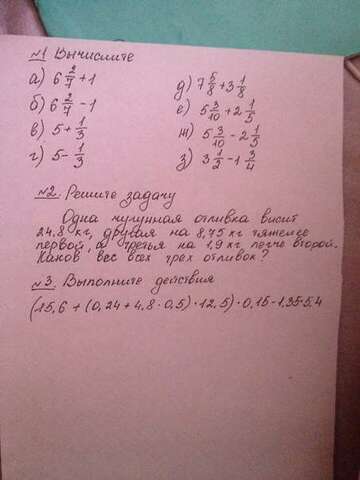 №1 Вычислите
а) 6 2/7 + 1
б) 6 2/7 - 1
в) 5 + 1/3
г) 5 - 1/3
д) 7 5/8 + 3 1/8
е) 5 3/10 + 2 1/5
ж) 5 3/10 - 2 1/5
з) 3 1/2 - 1 3/4
№2. Решите задачу
Одна чугунная отливка висит
24,8 кг, другая на 8,75 кг тяжелее
первой, а третья на 1,9 кг, легче второй.
Каков вес всех трех отливок?
№3. Выполните действия
(15,6 + (0,24 + 4,8 · 0,5) · 12,5) · 0,15 - 1,35·5,4